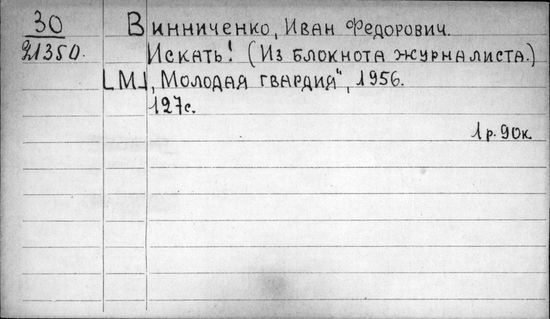 30 Винниченко, Иван Федорович.
21350. Искать! (Из блокнота журналиста.)
[М.], „Молодая гвардия", 1956.
127с.
1р.90к.